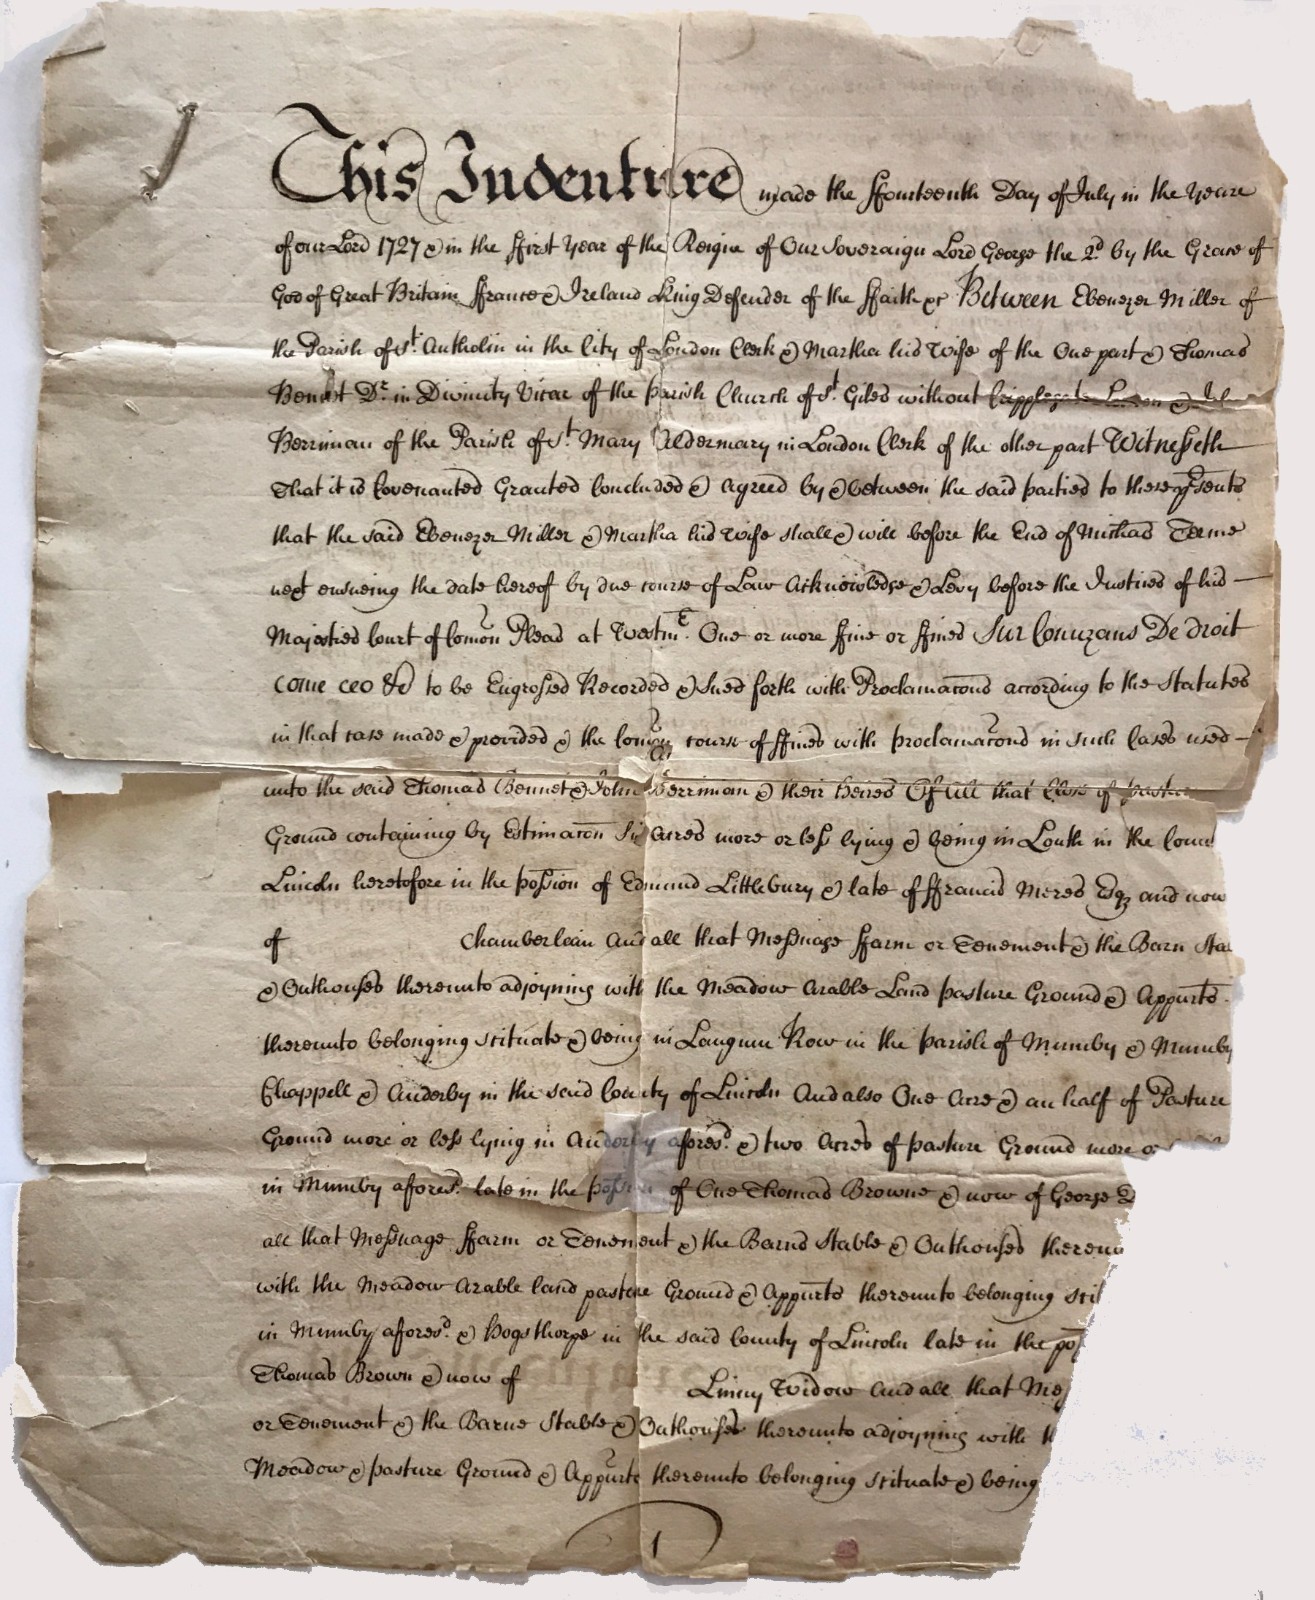 This Indenture made the ffourteenth Day of July in the Yeare
of our Lord 1727 & in the ffirst Year of the Reigne of Our Soveraign Lord George the 2d by the Grace of
God of Great Britain ffrance & Ireland King Defender of the ffaith &c Between Ebenezer Miller of
the Parish of St. Antholin in the City of London Clerk & Martha his Wife of the One part & Thomas
Bennet Dr. in Divinity Vicar of the Parish Church of St. Giles without Cripplegate London & John
Berriman of the Parish of St. Mary Aldermary in London Clerk of the other part Witnesseth
That it is Covenanted Granted Concluded & agreed by & between the said parties to these psents
that the said Ebenezer Miller & Martha his Wife shall & will before the End of Michas Terme
next ensueing the date hereof by due course of Law Acknowledge & Levy before the Justices of his
Majesties Court of Comon Pleas at Westmr. One or more ffine or ffines Sur Conuzans De droit
come ceo &c to be Engrossed Recorded & Sued forth with Proclamacons according to the Statutes
in that case made & provided & the Comon course of ffines with proclamacons in such Cases used
unto the said Thomas Bennet & John Berriman & their heires Of All that Close of pasture
Ground containing by Estimacon Six Acres more or less lying & being in Louth in the Coun
Lincoln heretofore in the possion of Edmund Littlebury & late of ffrancis Meres Esqr and now
of Chamberlain And all that Messuage ffarm or Tenement & the Barn Sta
& Outhouses thereunto adjoyning with the Meadow Arable Land pasture Ground & Appurts
thereunto belonging scituate & being in Langum Row in the parish of Mumby & Mumby
Chappell & Anderby in the said County of Lincoln And also One Acre & an half of Pasture
Ground more or less lying in Anderby aforesd. & two Acres of pasture Ground more o
in Mumby aforesd. late in the possion of One Thomas Browne & now of George
all that Messuage ffarm or Tenement & the Barns Stable & Outhouses thereun
with the Meadow Arable land pasture Ground & Appurts thereunto belonging scit
in Mumby aforesd. & Hogsthorpe in the said County of Lincoln late in the pos
Thomas Brown & now of Linny Widow And all that Mes
or Tenement & the Barne Stable & Outhouses thereunto adjoyning with th
Meadow & pasture Ground & Appurts thereunto belonging scituate & being
1